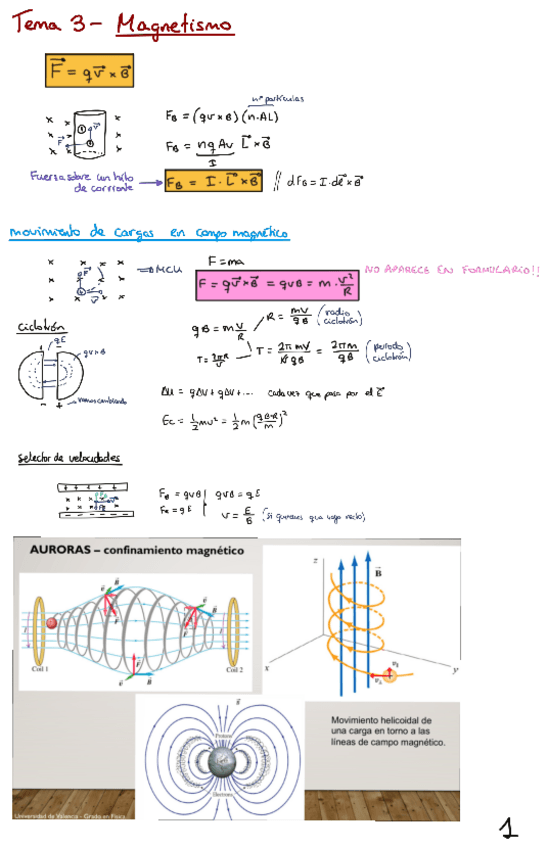 Tema 3 - Magnetismo
F⃗ = qv⃗ × B⃗
nº partículas
F_B = (qv × B)(n·AL)
F_B = nqAv L⃗ × B⃗
I
Fuerza sobre un hilo de corriente → F_B = I·L⃗ × B⃗ // dF_B = I·dℓ⃗ × B⃗
movimiento de cargas en campo magnético
⇒ MCU
F = ma
F = qv⃗ × B⃗ = qvB = m · v²/R
NO APARECE EN FORMULARIO!!
Ciclotrón
qE
qv×B
- +
vamos cambiando
qB = m v/R
R = mv/qB (radio ciclotrón)
T = 2πR/v
T = 2π mV/V qB = 2πm/qB (periodo ciclotrón)
Δu = qΔV + qΔV + ... cada vez que pasa por el E⃗
Ec = 1/2 mv² = 1/2 m (qBR/m)²
Selector de velocidades
F_B = qvB
Fe = qE
qvB = qE
v = E/B (si queremos que vaya recto)
AURORAS – confinamiento magnético
Coil 1
Coil 2
z
B⃗
x
y
Protons
Electrons
Movimiento helicoidal de
una carga en torno a las
líneas de campo magnético.
Universidad de Valencia - Grado en Física
1